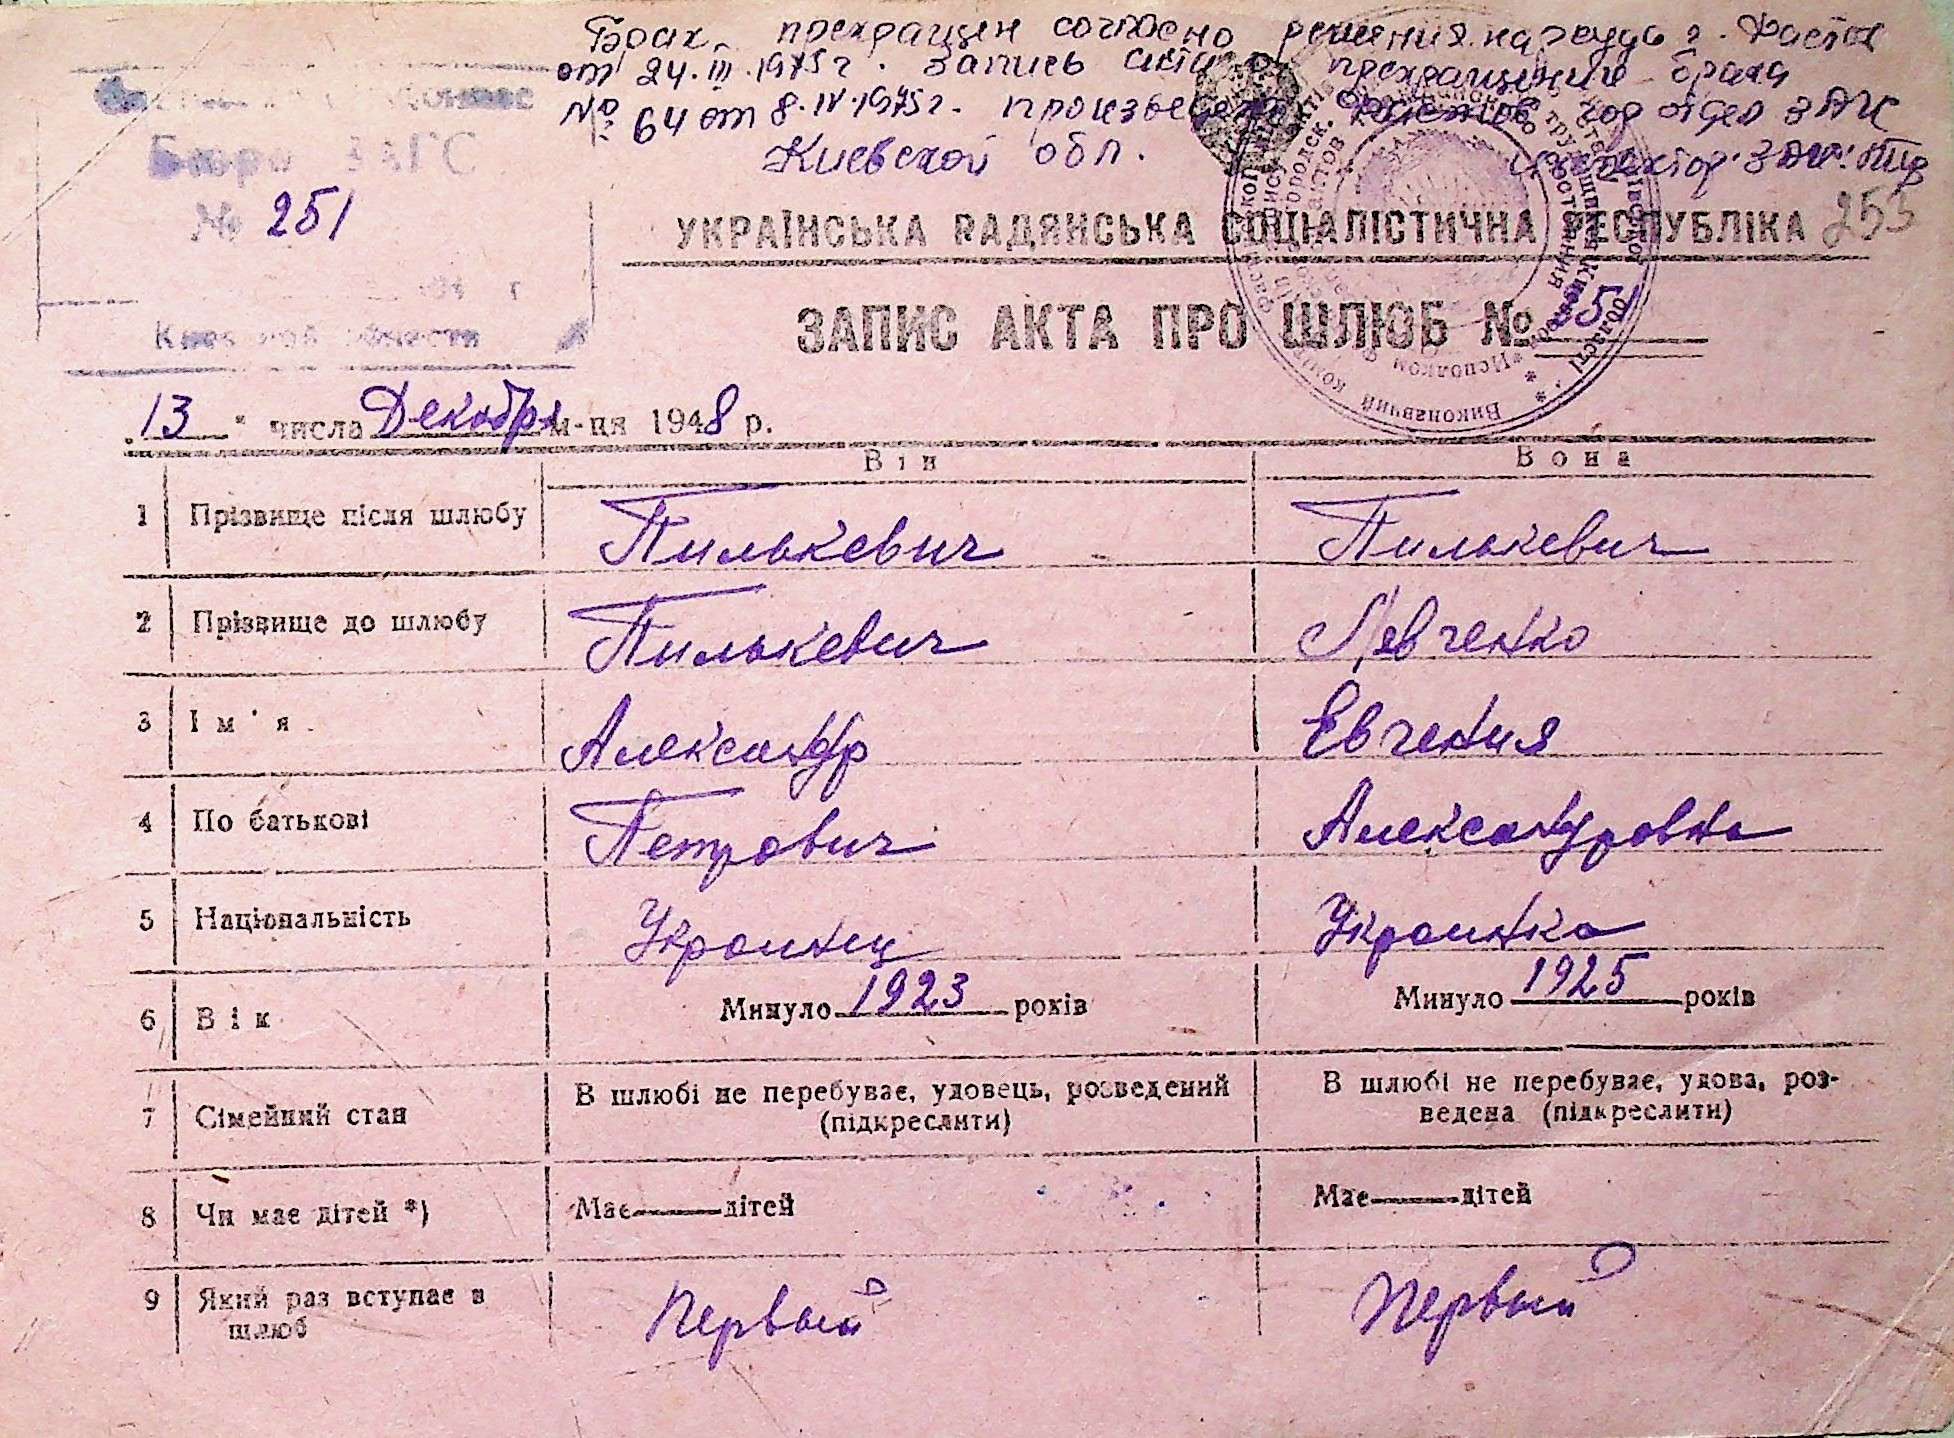 Брак прекращен согласно решения нарсуда г. Фастов
от 24.III.1975г. Запись акта о прекращении брака
№ 64 от 8.IV.1975г. произведена Фастов гор отдел ЗАГС
Киевской обл. Инспектор ЗАГС
Бюро ЗАГС
№ 251
УКРАЇНСЬКА РАДЯНСЬКА СОЦІАЛІСТИЧНА РЕСПУБЛІКА 253
Киевской области
ЗАПИС АКТА ПРО ШЛЮБ № 251
„13" числа Декабря м-ця 1948 р.
Він Вона
1 Прізвище після шлюбу Пилькевич Пилькевич
2 Прізвище до шлюбу Пилькевич Левченко
3 Ім'я Александр Евгения
4 По батькові Петрович Александровна
5 Національність Украинец Украинка
6 Вік Минуло 1923 років Минуло 1925 років
7 Сімейний стан В шлюбі не перебуває, удовець, розведений (підкреслити) В шлюбі не перебуває, удова, роз-
ведена (підкреслити)
8 Чи має дітей *) Має — дітей Має — дітей
9 Який раз вступає в Первый Первый
шлюб